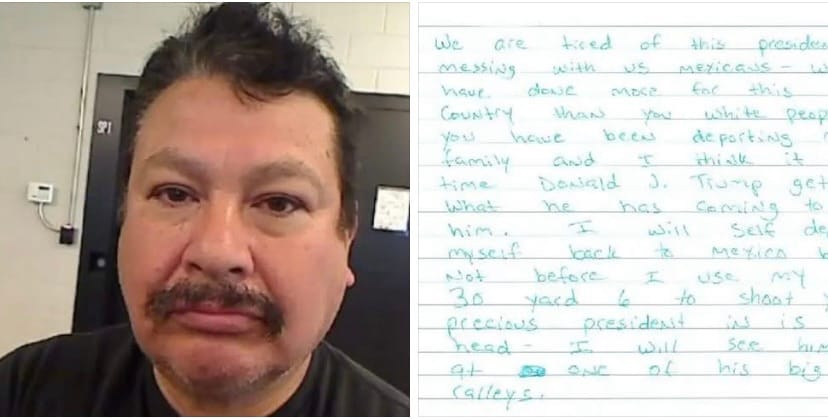 SPI
We are tired of this presiden
messing with us mexicans - w
have done more for this
country than you white peop
you have been deporting
family and I think it
time Donald J. Trump get
what he has coming to
him. I will self de
myself back to Mexico b
Not before I use my
30 yard 6 to shoot y
precious president in is
head - I will see him
at one of his big
ralleys.